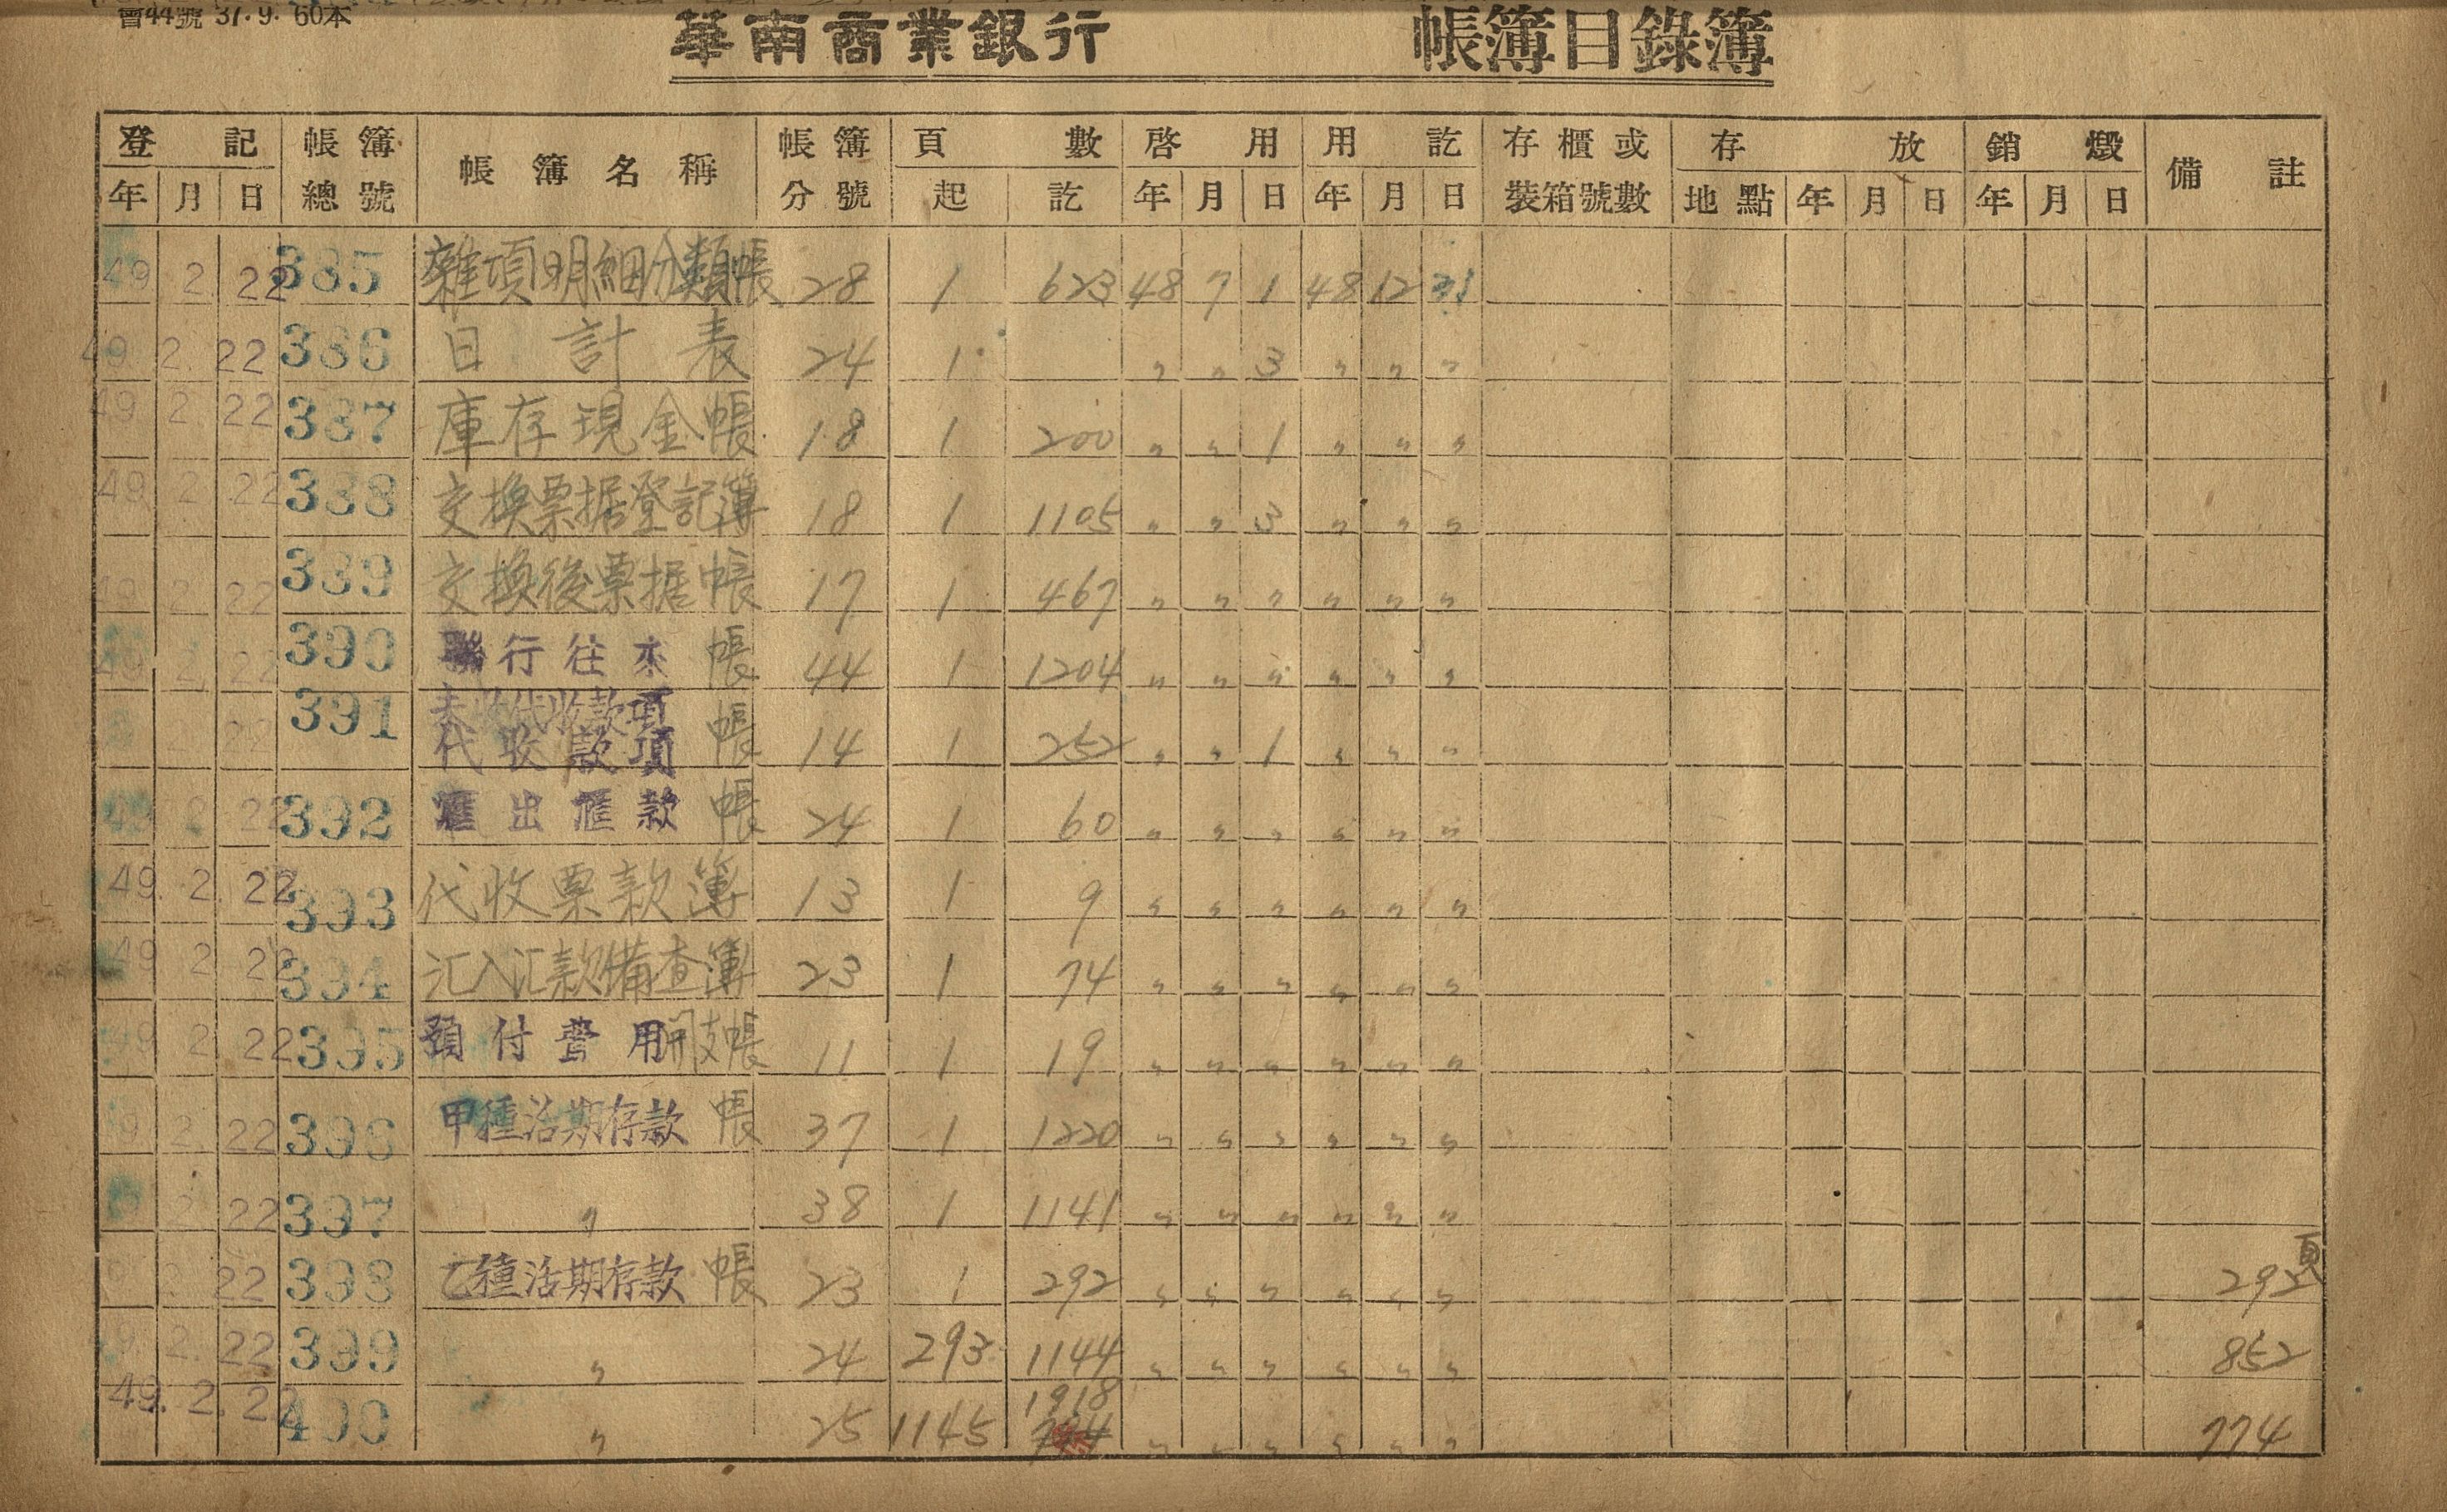 會44號 37.9. 60本
華南商業銀行 帳簿目錄簿
登記 帳簿總號 帳簿名稱 帳簿分號 頁數 啓用 用訖 存櫃或裝箱號數 存放 銷燬 備註
年 月 日 起 訖 年 月 日 年 月 日 地點 年 月 日 年 月 日
49 2 22 385 雜項明細分類帳 28 1 623 48 7 1 48 12 31
49. 2. 22 386 日計表 24 1 〃 〃 3 〃 〃 〃
49 2 22 387 庫存現金帳 18 1 200 〃 〃 1 〃 〃 〃
49 2 22 388 交換票据登記簿 18 1 1105 〃 〃 3 〃 〃 〃
49 2 22 389 交換後票据帳 17 1 467 〃 〃 〃 〃 〃 〃
49 2 22 390 聯行往來帳 44 1 1204 〃 〃 〃 〃 〃 〃
22 391 未收代收款項
代收款項帳 14 1 252 〃 〃 1 〃 〃 〃
49 2 22 392 匯出匯款帳 24 1 60 〃 〃 〃 〃 〃 〃
49. 2. 22 393 代收票款簿 13 1 9 〃 〃 〃 〃 〃 〃
49 2 22 394 汇入汇款備查簿 23 1 74 〃 〃 〃 〃 〃 〃
49 2 22 395 預付費用開支帳 11 1 19 〃 〃 〃 〃 〃 〃
9 2. 22 396 甲種活期存款帳 37 1 1220 〃 〃 〃 〃 〃 〃
2 22 397 〃 38 1 1141 〃 〃 〃 〃 〃 〃
22 398 乙種活期存款帳 23 1 292 〃 〃 〃 〃 〃 〃 292頁
9. 2. 22 399 〃 24 293 1144 〃 〃 〃 〃 〃 〃 852
49. 2. 22 400 〃 25 1145 1918 〃 〃 〃 〃 〃 〃 774